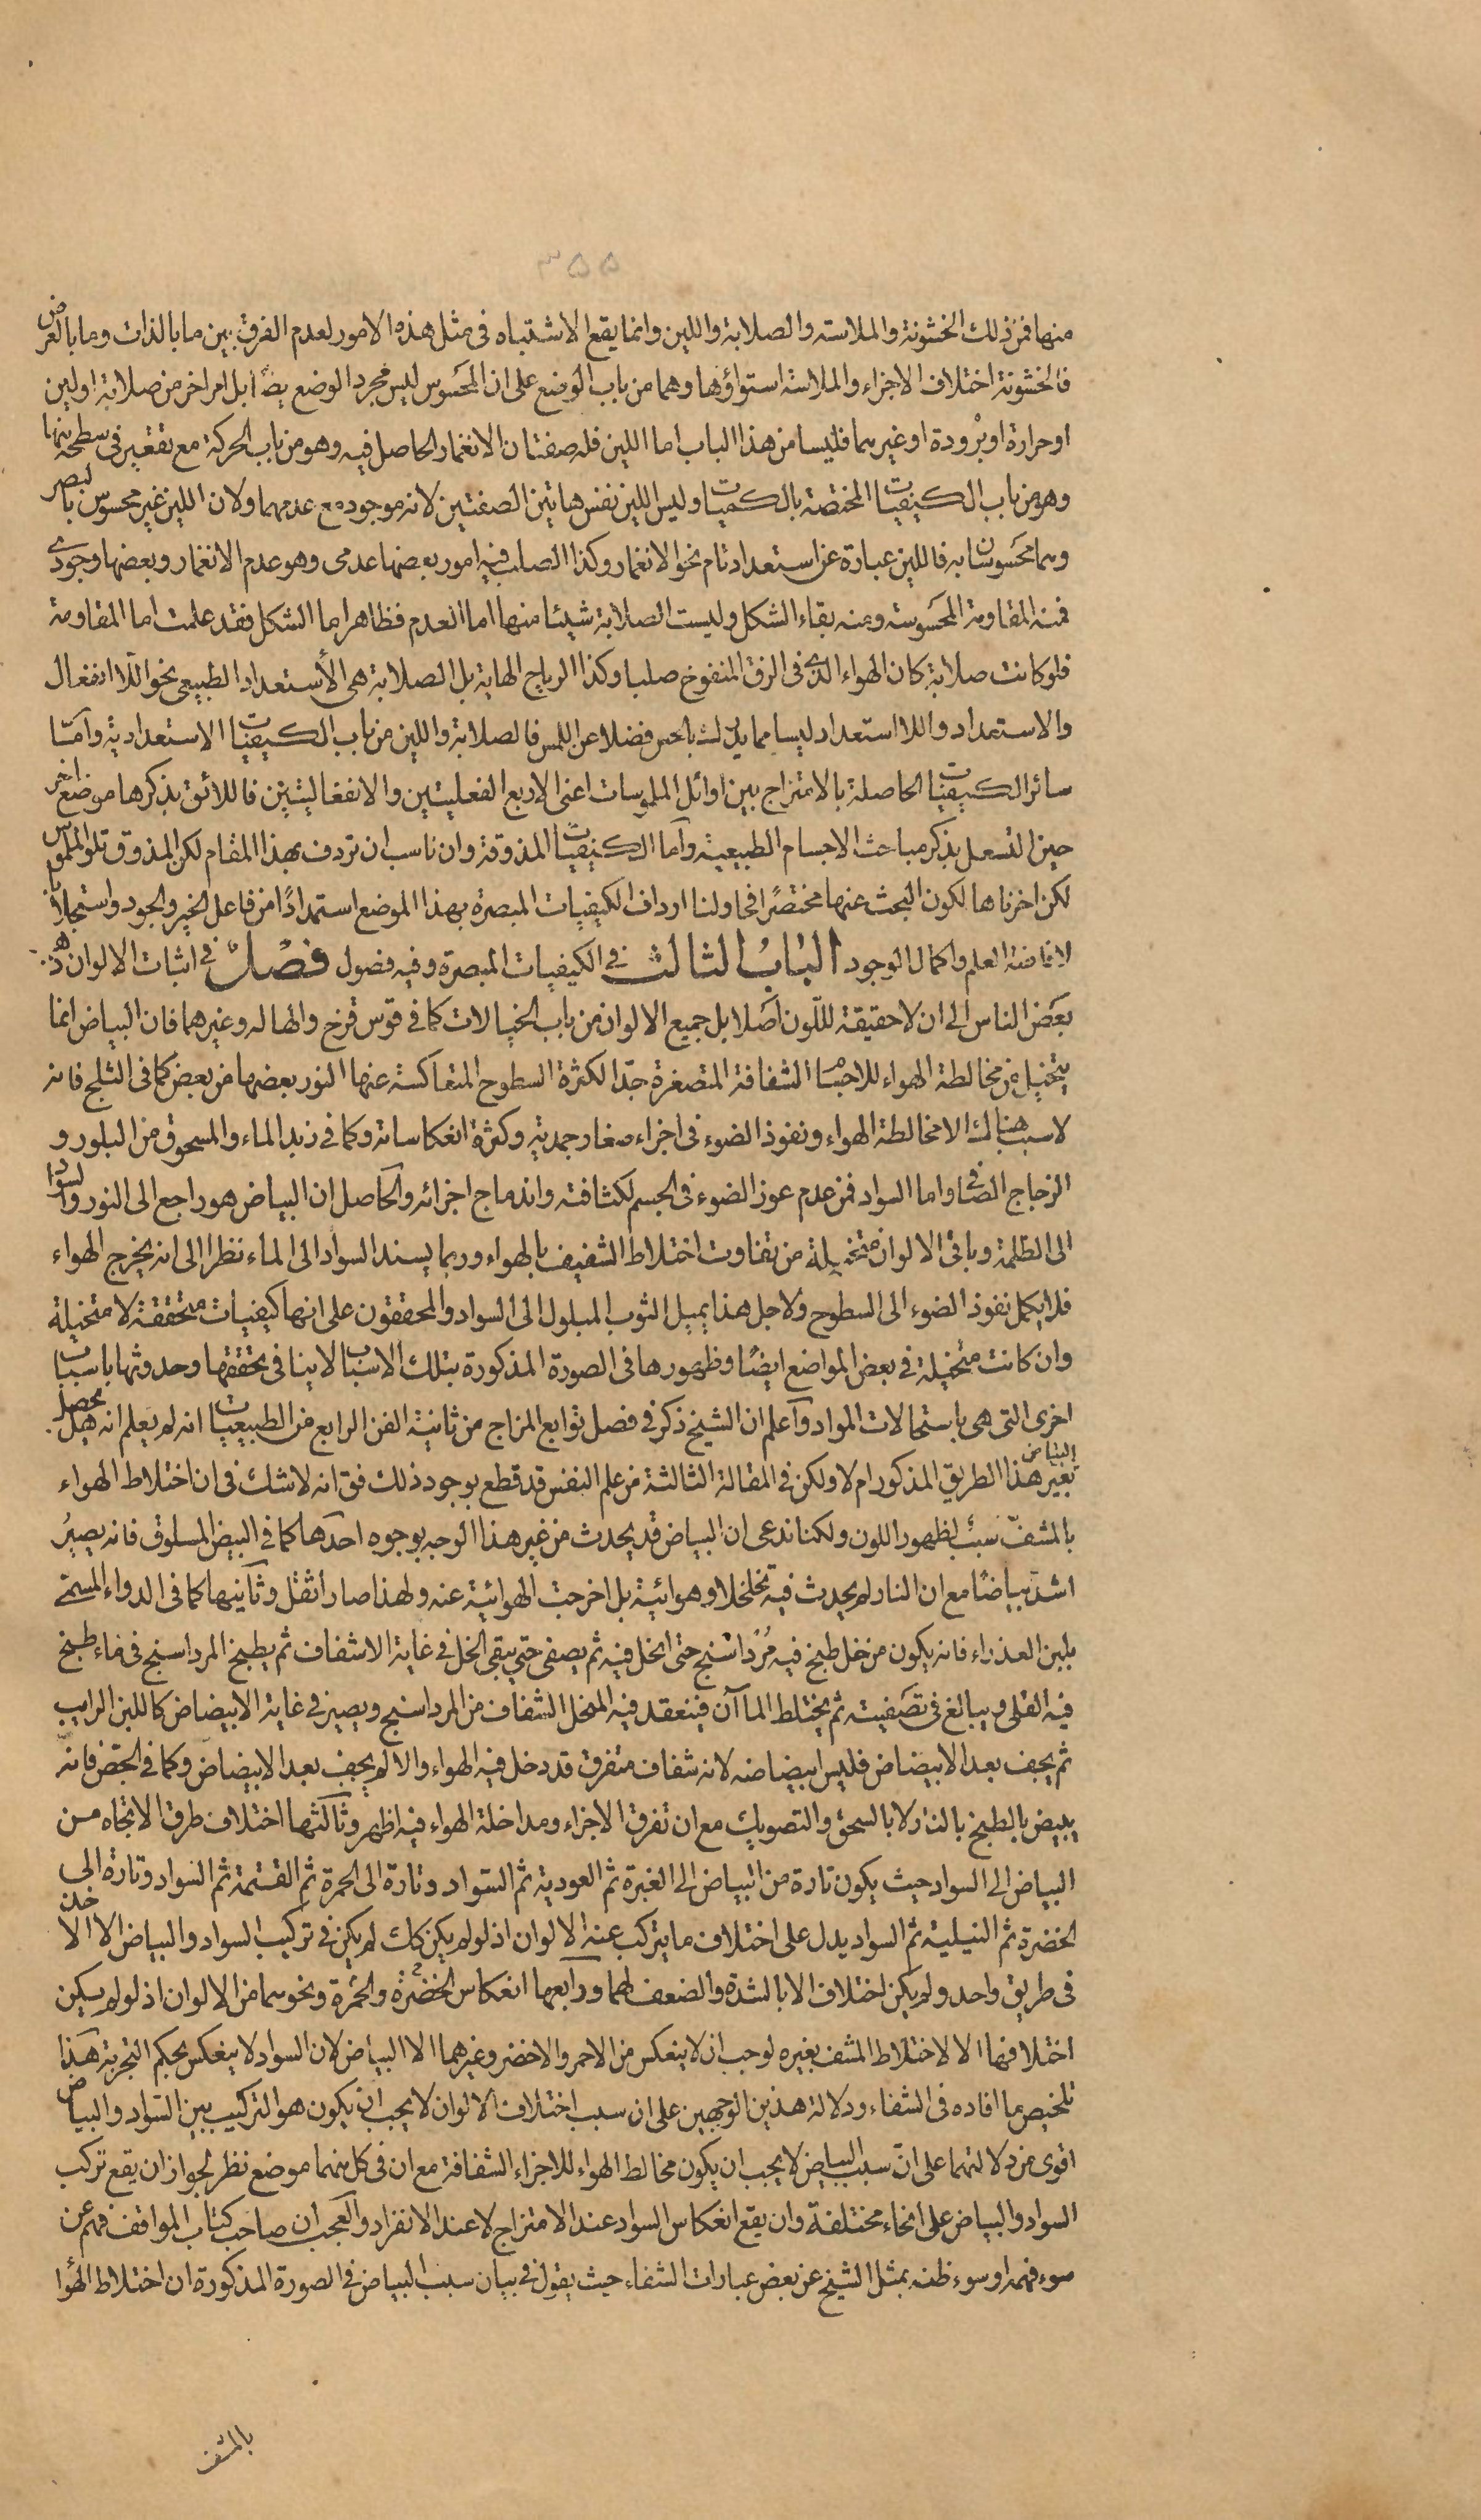 ۳۵۵
منها فمن ذلك الخشونة والملاسته والصلابة واللين وانما يقع الاشتباه فى مثل هذه الامور لعدم الفرق بين ما بالذات وما بالعرض
فالخشونة اختلاف الاجزاء والملاسته استواؤها وهما من باب الوضع على ان المحسوس ليس مجرد الوضع يضًا بل امر اخر من صلابة او لين
او حرارة او برودة او غيرهما فليسا من هذا الباب اما اللين فله صفتان الانغمار الحاصل فيه وهو من باب الحركة مع تقعير فى سطحه منهما
وهو من باب الكيفيات المختصة بالكميات وليس اللين نفس هاتين الصفتين لانه موجود مع عدمهما ولان اللين غير محسوس بالبصر
وهما محسوسان به فاللين عبارة عن استعداد تام نحو الانغمار وكذا الصلب فيه امور بعضها عدمى وهو عدم الانغمار وبعضها وجودى
فمنه المقاومة المحسوسة ومنه بقاء الشكل وليست الصلابة شيئا منها اما العدم فظاهر اما الشكل فقد علمت اما المقاومة
فلو كانت صلابة كان الهواء الذى فى الزق المنفوخ صلبا وكذا الرياح الهابة بل الصلابة هى الأستعداد الطبيعى نحو اللاانفعال
والاستعداد واللااستعداد ليسا مما يدرك بالحس فضلا عن اللمس فالصلابة واللين من باب الكيفيات الاستعدادية وامّا
سائر الكيفيات الحاصلة بالامتزاج بين اوائل الملموسات اعنى الاربع الفعليتين والانفعاليتين فاللائق بذكرها موضع اخر
حين اشتغل بذكر مباحث الاجسام الطبيعية وأما الكيفيات المذوقة وان ناسب ان تردف بهذا المقام لكن المذوق تلو الملموس
لكن اخرناها لكون البحث عنها مختصرًا فحاولنا ارداف الكيفيات المبصرة بهذا الموضع استمدادًا من فاعل الخير والجود واستجلابًا
لافاضة العلم واكمال الوجود الباب الثالث فى الكيفيات المبصرة وفيه فصول فصل فى اثبات الالوان ذهب
بعض الناس الى ان لا حقيقة للّون اصلا بل جميع الالوان من باب الخيالات كما فى قوس قزح والهاله وغيرهما فان البياض انما
يتخيل من مخالطة الهواء للاجسام الشفافة المتصغرة جدّا لكثرة السطوح المتعاكسة عنها النور بعضها من بعض كما فى الثلج فانه
لا سبب هناك الا مخالطة الهواء ونفوذ الضوء فى اجزاء صغار جمدية وكثرة انعكاساته وكما فى زبد الماء والمسحوق من البلور و
الزجاج الصافى واما السواد فمن عدم غور الضوء فى الجسم لكثافته واندماج اجزائه والحاصل ان البياض هو راجع الى النور والسواد
الى الظلمة وباقى الالوان متخيلة من تفاوت اختلاط الشفيف بالهواء وربما يسند السواد الى الماء نظرا الى انه يخرج الهواء
فلا يكمل نفوذ الضوء الى السطوح ولاجل هذا يميل الثوب المبلول الى السواد والمحققون على انها كيفيات متحققة لا متخيلة
وان كانت متخيلة فى بعض المواضع ايضًا وظهورها فى الصورة المذكورة بتلك الاسباب لا ينافى تحققها وحدوثها باسباب
اخرى التى هى باستحالات المواد وآعلم ان الشيخ ذكر فى فصل توابع المزاج من ثانية الفن الرابع من الطبيعيات انه لم يعلم انه هل يحصل
البياض
بغير هذا الطريق المذكور ام لا ولكن فى المقالة الثالثة من علم النفس قد قطع بوجود ذلك فق انه لا شك فى ان اختلاط الهواء
بالمشفّ سبب لظهور اللون ولكنا ندعى ان البياض قد يحدث من غير هذا الوجه بوجوه احدها كما فى البيض المسلوق فانه يصيرُ
اشد بياضًا مع ان النار لم يحدث فيه تخلخلا وهوائية بل اخرجت الهوائية عنه ولهذا صار اثقل وثانيها كما فى الدواء المسمى
بلبن العذراء فانه يكون من خل طبخ فيه مُرداسنج حتى انحل فيه ثم يصفى حتى يبقى الخل فى غاية الاشفاف ثم يطبخ المرداسنج فى ماء طبخ
فيه القلى ويبالغ فى تصفيته ثم يختلط الماآن فينعقد فيه المنحل الشفاف من المرداسنج ويصير فى غاية الابيضاض كاللبن الرايب
ثم يجف بعد الابيضاض فليس ابيضاضه لانه شفاف متفرق قد دخل فيه الهواء والا لم يجف بعد الابيضاض وكما فى الجصّ فانّه
يبيض بالطبخ بالنار لا بالسحق والتصويل مع ان تفرق الاجزاء ومداخلة الهواء فيه اظهر وثالثها اختلاف طرق الاتجاه من
البياض الى السواد حيث يكون تارة من البياض الى الغبرة ثم العودية ثم السّواد وتارة الى الحمرة ثم القتمة ثم السواد وتارة الى
الخضرة ثم النيلية ثم السواد يدل على اختلاف ما يتركب عنه الالوان اذ لو لم يكن كك لم يكن فى تركيب السواد والبياض الا الاخذ
فى طريق واحد ولم يكن اختلاف الا بالشدة والضعف لهما ورابعها انعكاس الخضرة والحمرة ونحوهما من الالوان اذ لو لم يكن
اختلافها الا لاختلاط المشف بغيره لوجب ان لا ينعكس من الاحمر والاخضر وغيرهما الا البياض لان السواد لا ينعكس بحكم التجربة هذا
تلخيص ما افاده فى الشفاء ودلالة هذين الوجهين على ان سبب اختلاف الالوان لا يجب ان يكون هو التركيب بين السّواد والبياض
اقوى من دلالتهما على انّ سبب البياض لا يجب ان يكون مخالط الهواء للاجزاء الشفافة مع ان فى كل منهما موضع نظر لجواز ان يقع تركب
السواد والبياض على انحاء مختلفة وان يقع انعكاس السواد عند الامتزاج لا عند الانفراد والعجب ان صاحب كتاب المواقف فهم عن
سوء فهمه او سوء ظنه بمثل الشيخ عن بعض عبارات الشفاء حيث يقول فى بيان سبب البياض فى الصورة المذكورة ان اختلاط الهواء
بالمشف